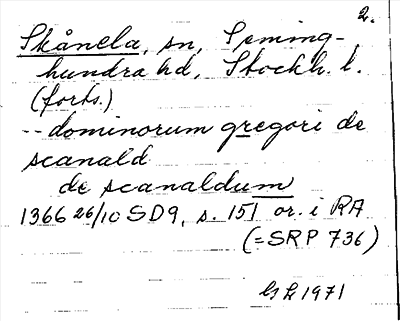 2.
Skånela, sn, Seming-
hundra hd, Stockh. l.
(forts.)
-- dominorum gregori de
scanald
de scanaldum
1366 26/10 SD9, s. 151 or. i RA
(= SRP 736)
GL 1971